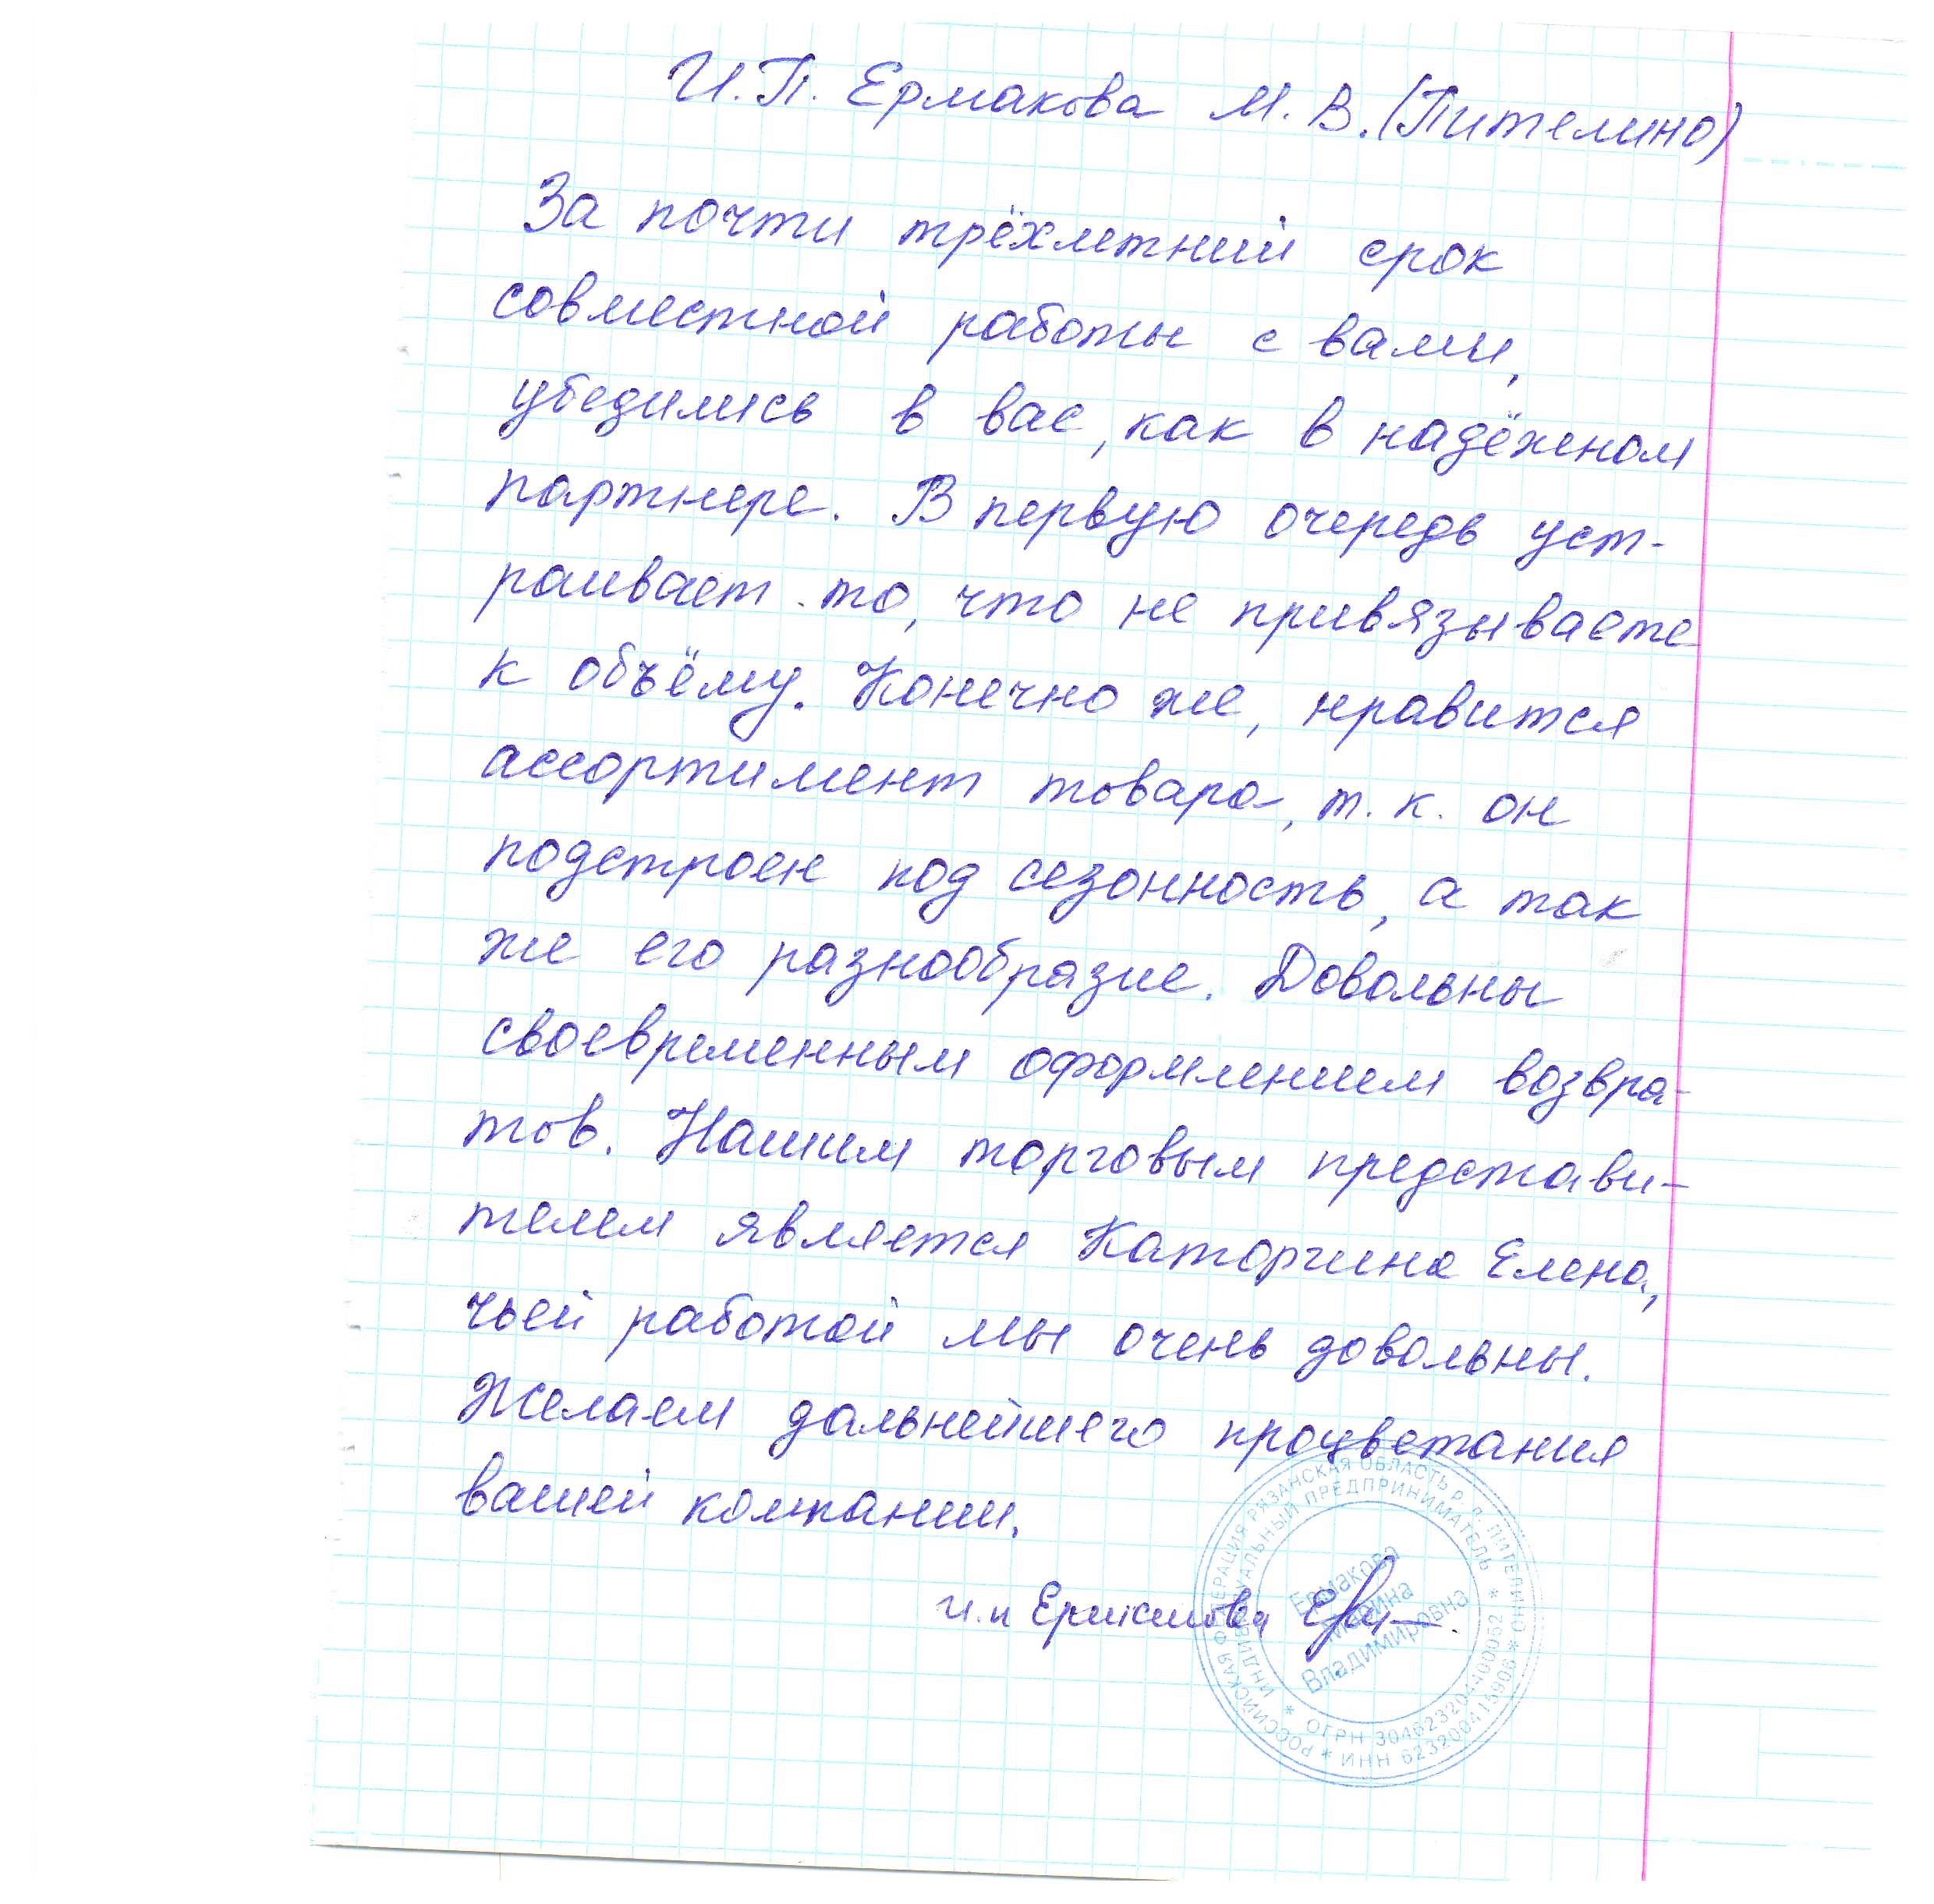 И.П. Ермакова М.В.(Пителино)
За почти трёхлетний срок
совместной работы с вами,
убедились в вас, как в надёжном
партнере. В первую очередь уст-
раивает то, что не привязываете
к объёму. Конечно же, нравится
ассортимент товара, т.к. он
подстроен под сезонность, а так
же его разнообразие. Довольны
своевременным оформлением возвра-
тов. Нашим торговым представи-
телем является Каторгина Елена,
чьей работой мы очень довольны.
Желаем дальнейшего процветания
вашей компании.
и.п Ермакова
РОССИЙСКАЯ ФЕДЕРАЦИЯ РЯЗАНСКАЯ ОБЛАСТЬ р. п. ПИТЕЛИНО
ИНДИВИДУАЛЬНЫЙ ПРЕДПРИНИМАТЕЛЬ
Ермакова
Марина
Владимировна
* ОГРН 304623204400052 *
* ИНН 623200415906 *